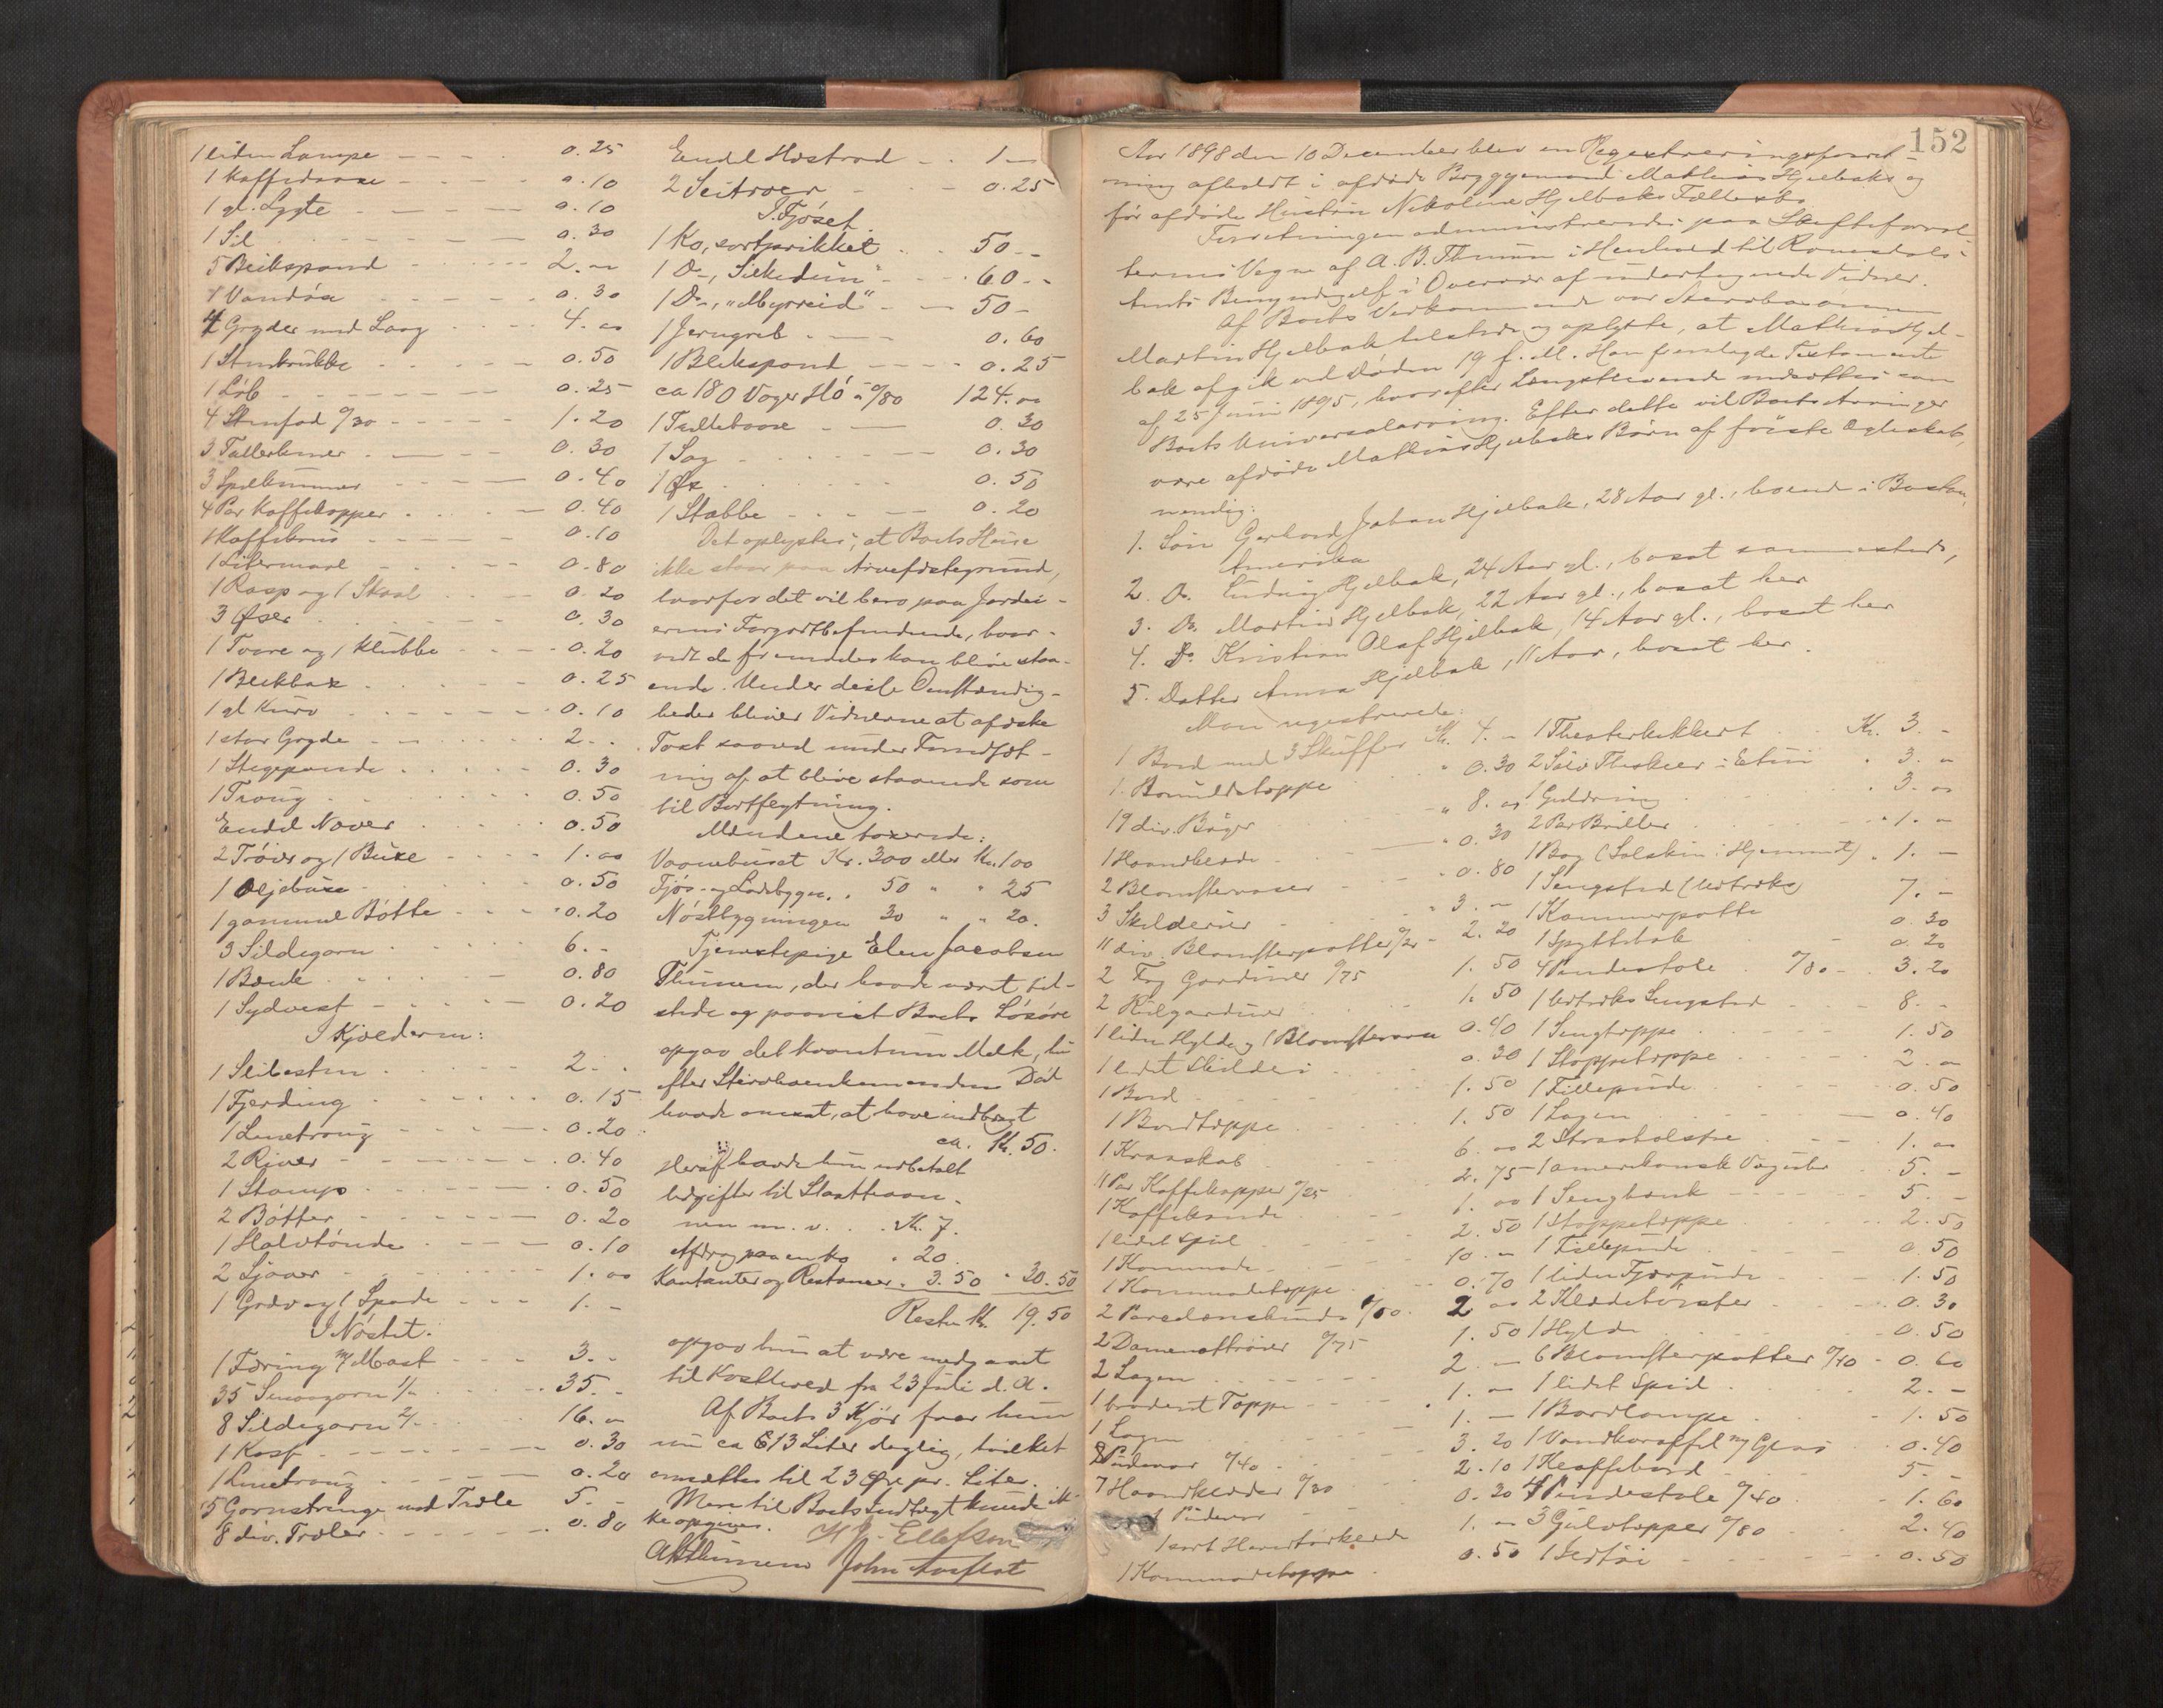 1 liden Lampe - - - 0.25
1 Kaffedaase - - - 0.10
1 gl. Lygte - - - 0.10
1 Sil - - - 0.30
5 Blikspand - - - 2.-
1 Vandøse - - - 0.30
4 Gryder med Laag - - 4.00
1 Stenkrukke - - - 0.50
1 Løb - - - 0.25
4 Stenfad 0/30 - - - 1.20
3 Tallerkener - - - 0.30
3 Spilkummer - - - 0.40
4 Par Kaffekopper - - - 0.40
1 Kaffebrus - - - 0.10
1 Litermaal - - - 0.80
1 Rasp og 1 Skaal - - 0.20
3 Øser - - - 0.30
1 Tvare og 1 Klubbe - - - 0.20
1 Blikbak - - - 0.25
1 gl Kurv - - - 0.10
1 stor Gryde - - - 2.-
1 Stegepande - - - 0.30
1 Traug - - - 0.50
Endel Naver - - - 0.50
2 Trøier og 1 Buxe - - - 1.00
1 Oljebuxe - - - 0.50
1 gammel Bøtte - - - 0.20
3 Sildegarn - - - 6.-
1 Bænk - - - 0.80
1 Sydvest - - - 0.20
I Kjælderen:
1 Slibesten - - - 2.-
1 Fjerding - - - 0.15
1 Linetraug - - - 0.20
2 River - - - 0.40
1 Stamp - - - 0.50
2 Bøtter - - - 0.20
1 Halvtønde - - - 0.10
2 Ljaaer - - - 1.00
1 Græv og 1 Spade - - - 1.-
I Nøstet:
1 Færing m/ Mast - - 3.-
35 Smaagarn 1/- - - 35.-
8 Sildegarn 2/- - - 16.-
1 Kasse - - - 0.30
1 Linetraug - - - 0.20
5 Garnstrenge med Træle 5.-
8 div. Træler - - - 0.80
Endel Høstraa - - 1 -
2 Seitroer - - - 0.25
I Fjøset.
1 Ko, sortprikket - - 50.-
1 Do, "Silkedun" - - 60.-
1 Do, "Myrreid" - - 50.-
1 Jerngreb - - - 0.60
1 Blikspand - - - 0.25
ca 180 Voger Hø à 0/80 124.00
1 Fælleboose - - 0.30
1 Sag - - - 0.30
1 Øx - - - 0.50
1 Stabbe - - - 0.20
Det oplystes, at Boets Huse
ikke staar paa Arvefæstegrund,
hvorfor det vil bero paa Jordei-
erens Forgodtbefindende, hvor-
vidt de fremdeles kan blive staa-
ende. Under disse Omstændig-
heder bliver Vidnerne at afæske
Taxt saavel under Forudsæt-
ning af at blive staaende som
til Bortflytning.
Mændene taxerede:
Vaanehuset Kr. 300 eller Kr. 100
Fjøs- og Ladebygn. " 50 " " 25
Nøstbygningen 30 " " 20.
Tjenestepige Elen Jacobsen
Thunem, der havde været til-
stede og paavist Boets Løsøre
opgav det Kvantum Melk, hu
efter Stervboenkemandens Død
havde omsat, at have indbragt
ca. Kr. 50.
Heraf havde hun udbetalt
Udgifter til Slaatteaan-
nen m. v. . . Kr. 7.
Afdrag paa en Ko " 20.
Kontanter og Restancer " 3.50 " 30.50
Rest Kr. 19.50
opgav hun at være medgaaet
til Kosthold fra 23 Juli d. A.
Af Boets 3 Kjør faar hun
nu ca 13 Liter daglig, hvilket
omsættes til 23 Øre pr. Liter.
Mere til Boets Indtægt kunde ik-
ke opgives.
Ellefsen
AThunem John
152
Aar 1898 den 10 December blev en Registreringsforret-
ning afholdt i afdøde Bryggemand Mathias Hjelbaks og
før afdøde Hustru Nikoline Hjelbaks Fællesbo.
Forretningen administreredes paa Skifteforval-
terens Vegne af A. B. Thunem i Henhold til Romsdals
Amts Bemyndigelse i Overvær af undertegnede Vidner.
Af Boets Vedkommende var Stervboesønnen
Martin Hjelbak tilstede og oplyste, at Mathias Hjel-
bak afgik ved Døden 19 f. M. Han fremlagde Testamente
af 25 Juni 1895, hvorefter Længstlevende indsættes som
Boets Universalarving. Efter dette vil Boets Arvinger
være afdøde Mathias Hjelbaks Børn af første Ægteskab,
nemlig:
1. Søn Gerhard Johan Hjelbak, 28 Aar gl., boende i Boston,
Amerika
2. Do. Ludvig Hjelbak, 24 Aar gl., bosat sammesteds,
3. Do. Martin Hjelbak, 22 Aar gl., bosat her
4. Do. Kristian Olaf Hjelbak, 14 Aar gl., bosat her
5. Datter Anna Hjelbak, 11 Aar, bosat her.
Man registrerede:
1 Bord med 3 Skuffer Kr. 4.-
1 Bomuldstæppe " 0.30
19 div. Bøger " 8.00
1 Haandklæde - - " 0.30
2 Blomstervaser - - " 0.80
3 Skilderier - - " 3.-
11 div. Blomsterpotter 0/20 - 2.20
2 Fag Gardiner 0/75 1.50
2 Rulgardiner - - 1.50
1 liden Hylde og 1 Blomstervase 0.40
1 lidet Skilderi - - 0.30
1 Bord - - 1.50
1 Bordtæppe - - 1.50
1 Kraaskab - - 6.00
11 Par Kaffekopper 0/25 2.75
1 Kaffekande - - 1.00
1 lidet Speil - - 2.50
1 Kommode - - 10.-
1 Kommodetæppe - - 0.70
2 Paradeaandklæde 1/00 2.00
2 Damenattrøier 0/75 1.50
2 Lagen - - 2.-
1 broderet Tæppe - - 1.-
1 Lagen - - 1.-
8 Pudevar 0/40 - - 3.20
7 Haandklæder 0/30 2.10
Pudevar - 0.30
1 sort Hovedtørklæde 1.-
1 Kommodetæppe - 0.50
1 Theaterkikkert - - Kr. 3.-
2 Sølv Theskeer i Etui " 3.-
1 Guldring - - " 3.00
2 Par Briller - - " 1.-
1 Bog (Solskin i Hjemmet) " 1.-
1 Sengsted (Udtræks) 7.-
1 Kammerpotte 0.30
1 Spyttebak - 0.20
4 Pindestole 0/80 - 3.20
1 Udtræks Sengsted - - 8.-
1 Sengtæppe - - 1.50
1 Stoppetæppe - - 2.00
1 Fillepude - - 0.50
1 Lagen - - 0.40
2 Straabolstre - - 1.00
1 amerikansk Vægur 5.-
1 Sengbænk - - 5.-
1 Stoppetæppe - - 2.50
1 Fillepude - - 0.50
1 liden Fjærpude - - 1.50
2 Klædebørster - - 0.30
1 Hylde - - 0.50
6 Blomsterpotter 0/10 - 0.60
1 lidet Speil - - 2.-
1 Bordlampe - - 1.50
1 Vandkaraffel m/ Glas - 0.40
1 Klaffebord - - 5.-
4 Pindestole 0/40 - 1.60
3 Gulvtæpper 0/80 - - 2.40
1 - - 0.50